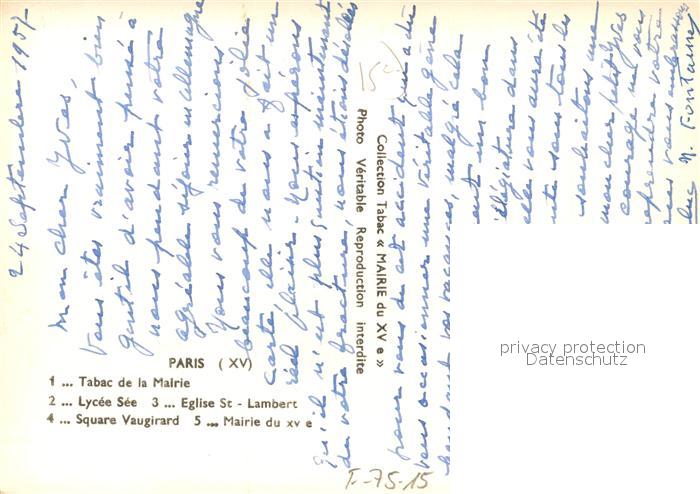 24 Septembre 1957
Mon cher Yves,
Vous êtes vraiment bien
gentil d'avoir pensé à
nous pendant votre
agréable séjour en Allemagne
Nous vous remercions
beaucoup de votre jolie
carte elle nous a fait un
réel plaisir - Nous espérons
qu'il n'est plus question maintenant
de votre fracture, nous étions désolés
pour vous de cet accident qui a dû
vous occasionner une véritable gêne
pendant vos vacances, malgré cela
ont un bon
légiature dans
elles vous aura été
nte sous tous les
souhaitons un
mon cher petit Yves
courage
reprendre votre
vous embrassons
M. Fontaine
15c
Collection Tabac « MAIRIE du XV e »
Photo Véritable Reproduction interdite
PARIS (XV)
1 ... Tabac de la Mairie
2 ... Lycée Sée 3 ... Eglise St - Lambert
4 ... Square Vaugirard 5 ... Mairie du XV e
F-75-15
privacy protection
Datenschutz